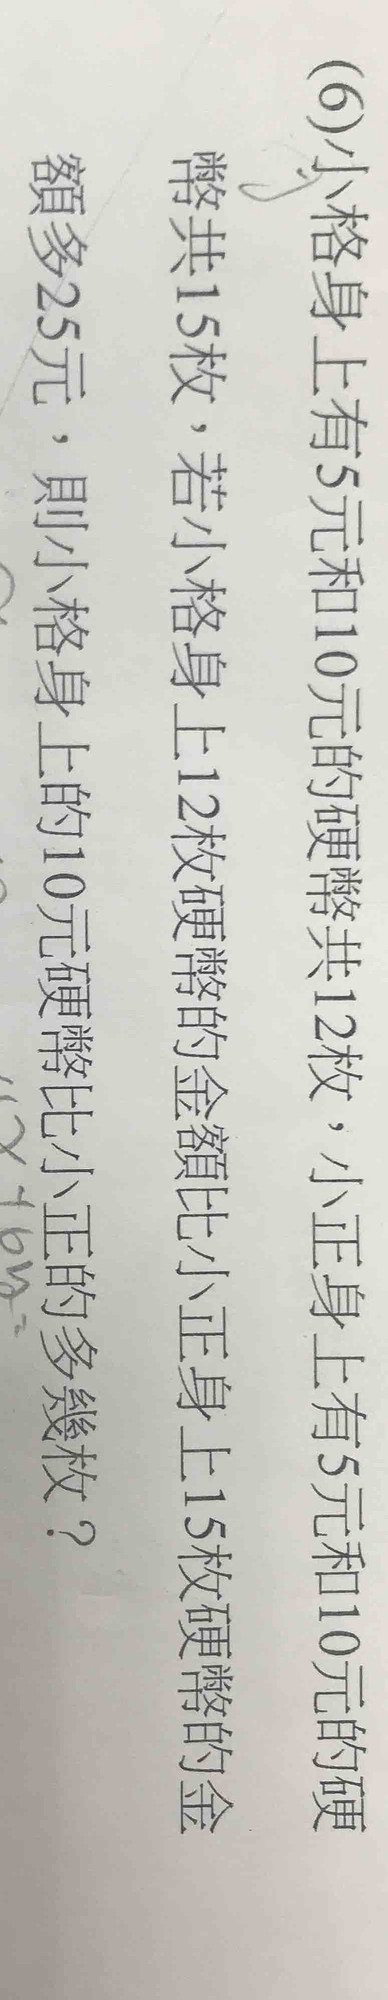 (6)小格身上有5元和10元的硬幣共12枚，小正身上有5元和10元的硬
幣共15枚，若小格身上12枚硬幣的金額比小正身上15枚硬幣的金
額多25元，則小格身上的10元硬幣比小正的多幾枚？